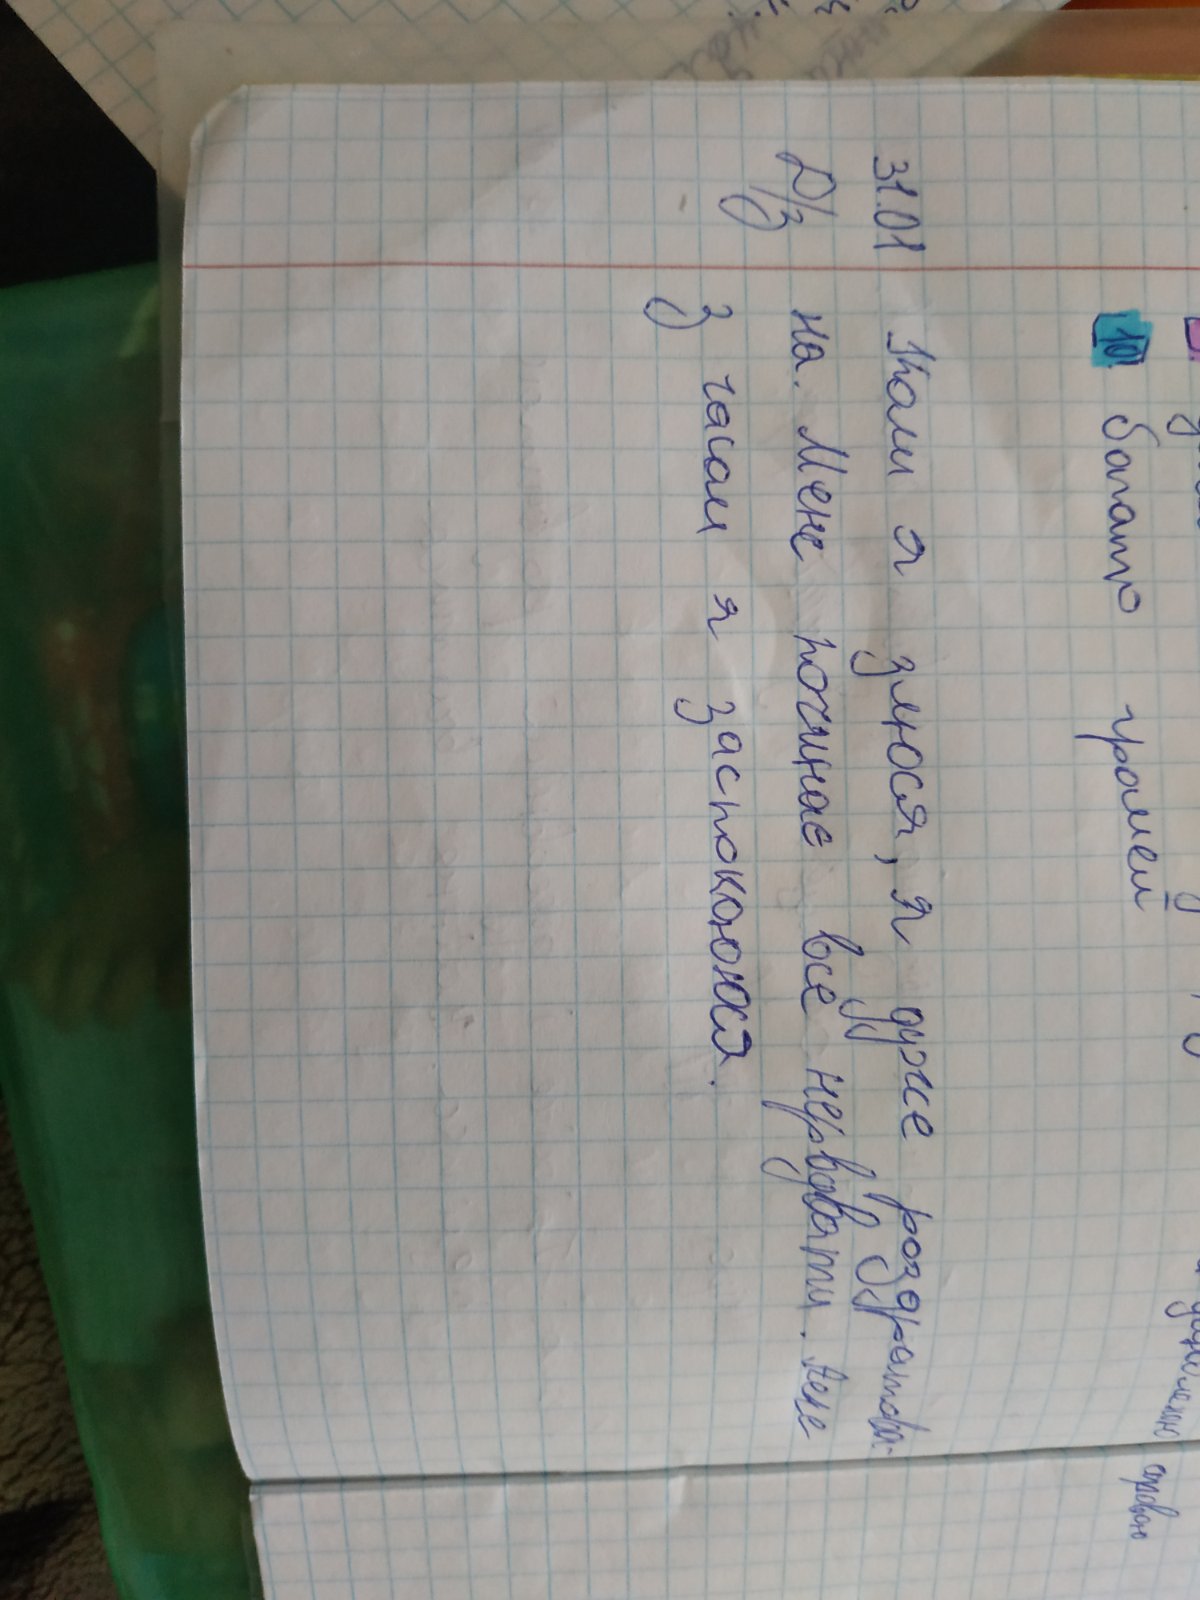 10. багато грамей
31.01 Коли я злюся, я дуже роздратова-
Д/з на. Мене починає все нервувати. Але
з часом я заспокоююся.